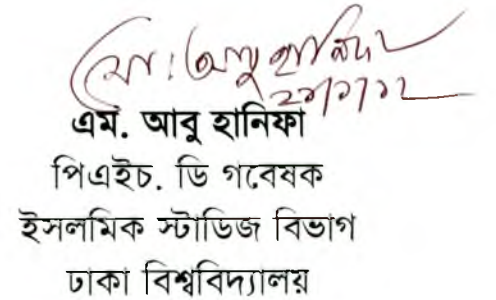 মো: আবু হানিফা
এম. আবু হানিফা
পিএইচ. ডি গবেষক
ইসলমিক স্টাডিজ বিভাগ
ঢাকা বিশ্ববিদ্যালয়